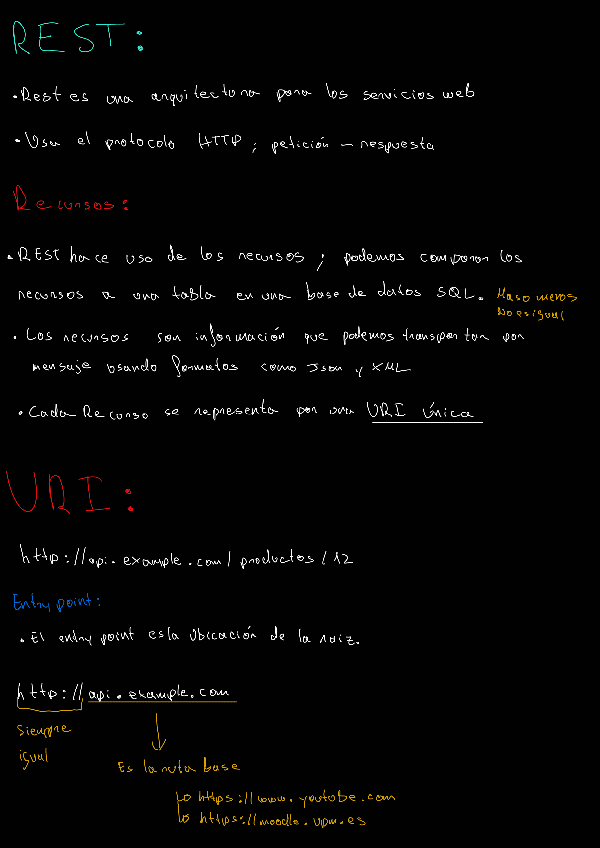 REST:
• Rest es una arquitectura para los servicios web
• Usa el protocolo HTTP ; petición – respuesta
Recursos:
• REST hace uso de los recursos ; podemos comparar los
recursos a una tabla en una base de datos SQL. Maso menos
No es igual
• Los recursos son información que podemos transportar por
mensaje usando formatos como Json y XML
• Cada Recurso se representa por una URI única
URI:
http://api.example.com/productos/12
Entry point:
• El entry point es la Ubicación de la raiz.
http://api.example.com
Siempre
igual
Es la ruta base
https://www.youtube.com
https://moodle.upm.es